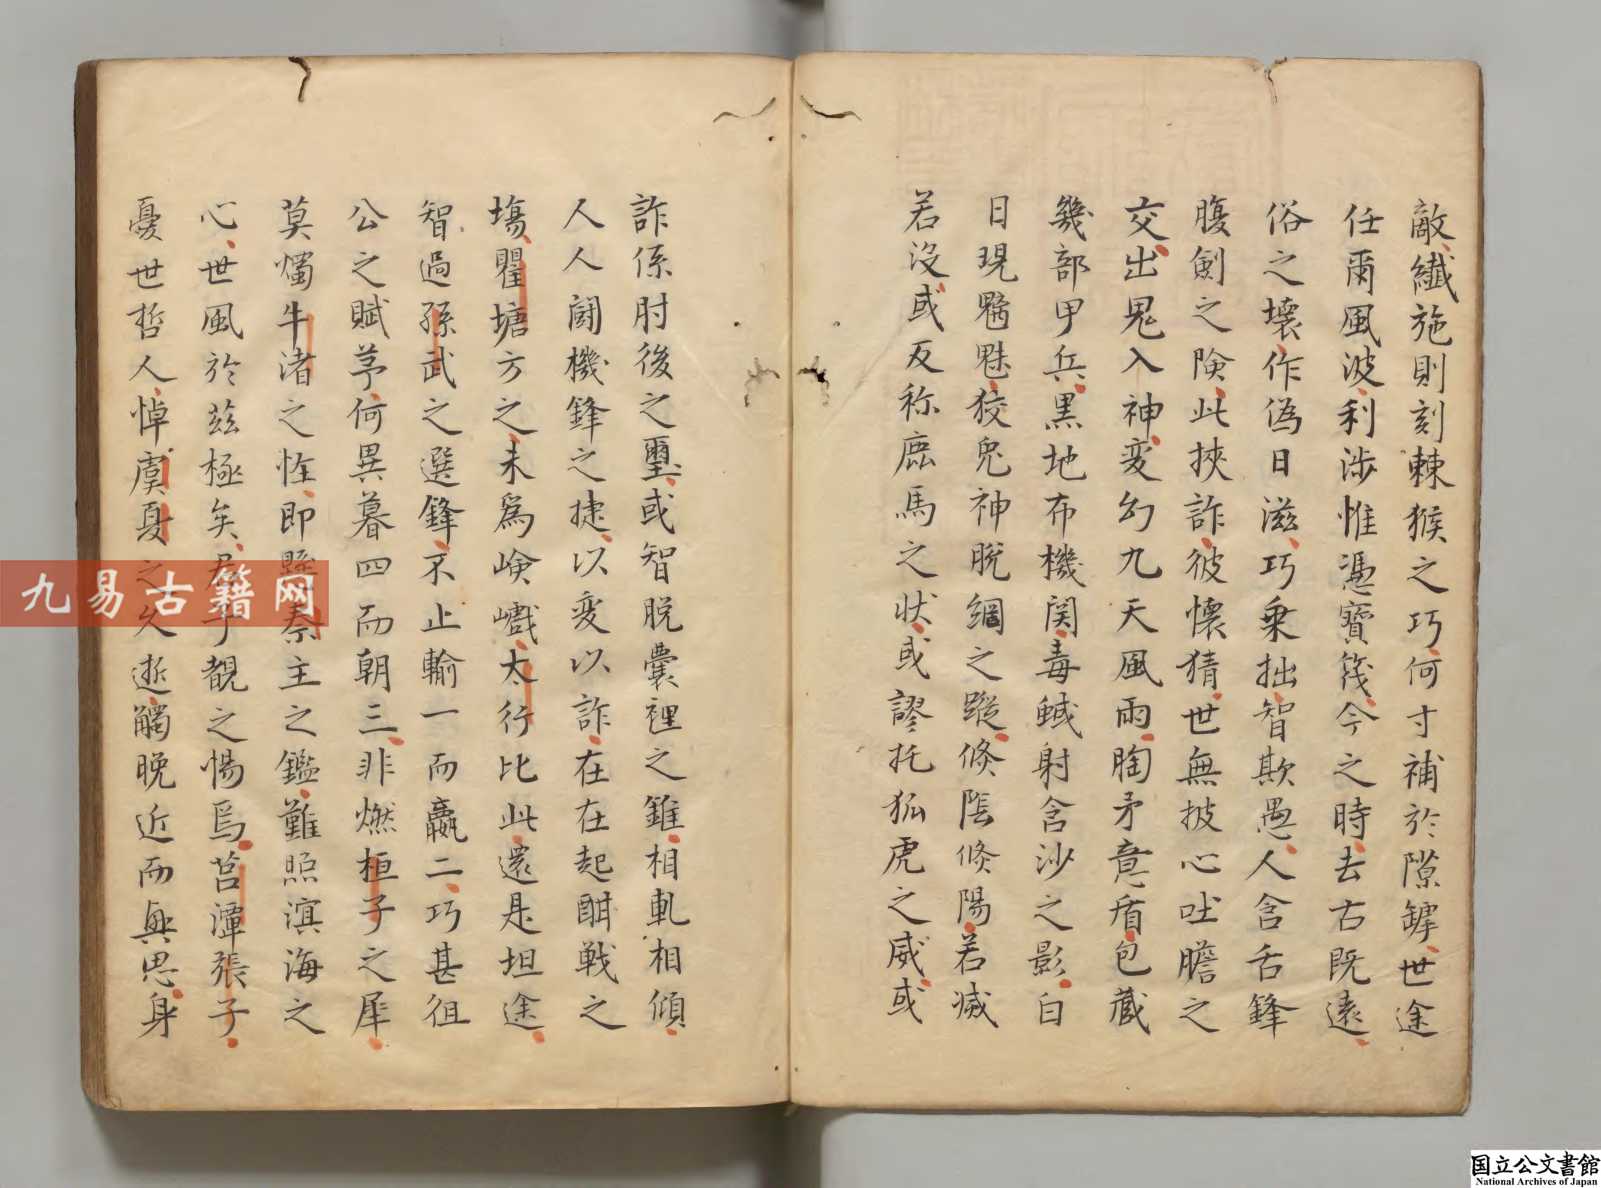 敵纎施則刻棘猴之巧何寸補於隙罅世途
任爾風波利涉惟憑寳筏今之時去古既遠
俗之壞作偽日滋巧乗拙智欺愚人含舌鋒
腹劍之険此挾詐彼懷猜世無披心吐膽之
交出鬼入神変幻九天風雨胸矛意盾包蔵
幾部甲兵黒地布機関毒蜮射含沙之影白
日現魑魅狡兎神脱網之蹤倏陰倏陽若滅
若没或反称鹿馬之状或謬托狐虎之威或
詐係肘後之璽或智脱嚢裡之錐相軋相傾
人人闘機鋒之捷以変以詐在在起酣戦之
塲瞿塘方之未為嶮巇太行比此還是坦途
智過孫武之選鋒不止輸一而贏二巧甚徂
公之賦芧何異暮四而朝三非燃桓子之犀
莫燭牛渚之怪即懸秦主之鑑難照溟海之
心世風於茲極矣君子覩之惕焉莒潭張子
憂世哲人悼虞夏之久逝觸晩近而興思身
九易古籍网
国立公文書館
National Archives of Japan